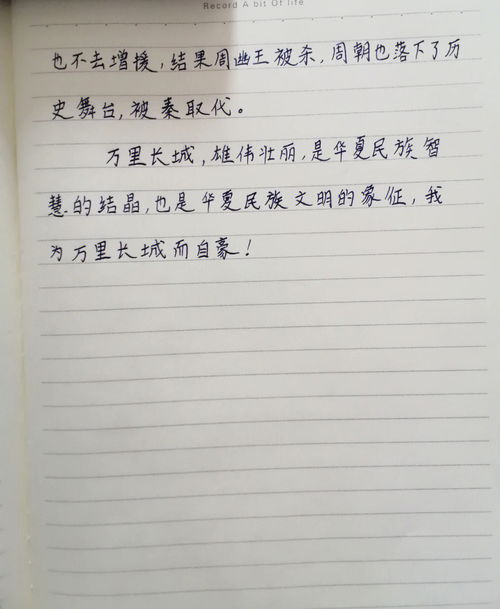 Record A bit Of life
也不去增援，结果周幽王被杀，周朝也落下了历
史舞台，被秦取代。
万里长城，雄伟壮丽，是华夏民族智
慧的结晶，也是华夏民族文明的象征，我
为万里长城而自豪！